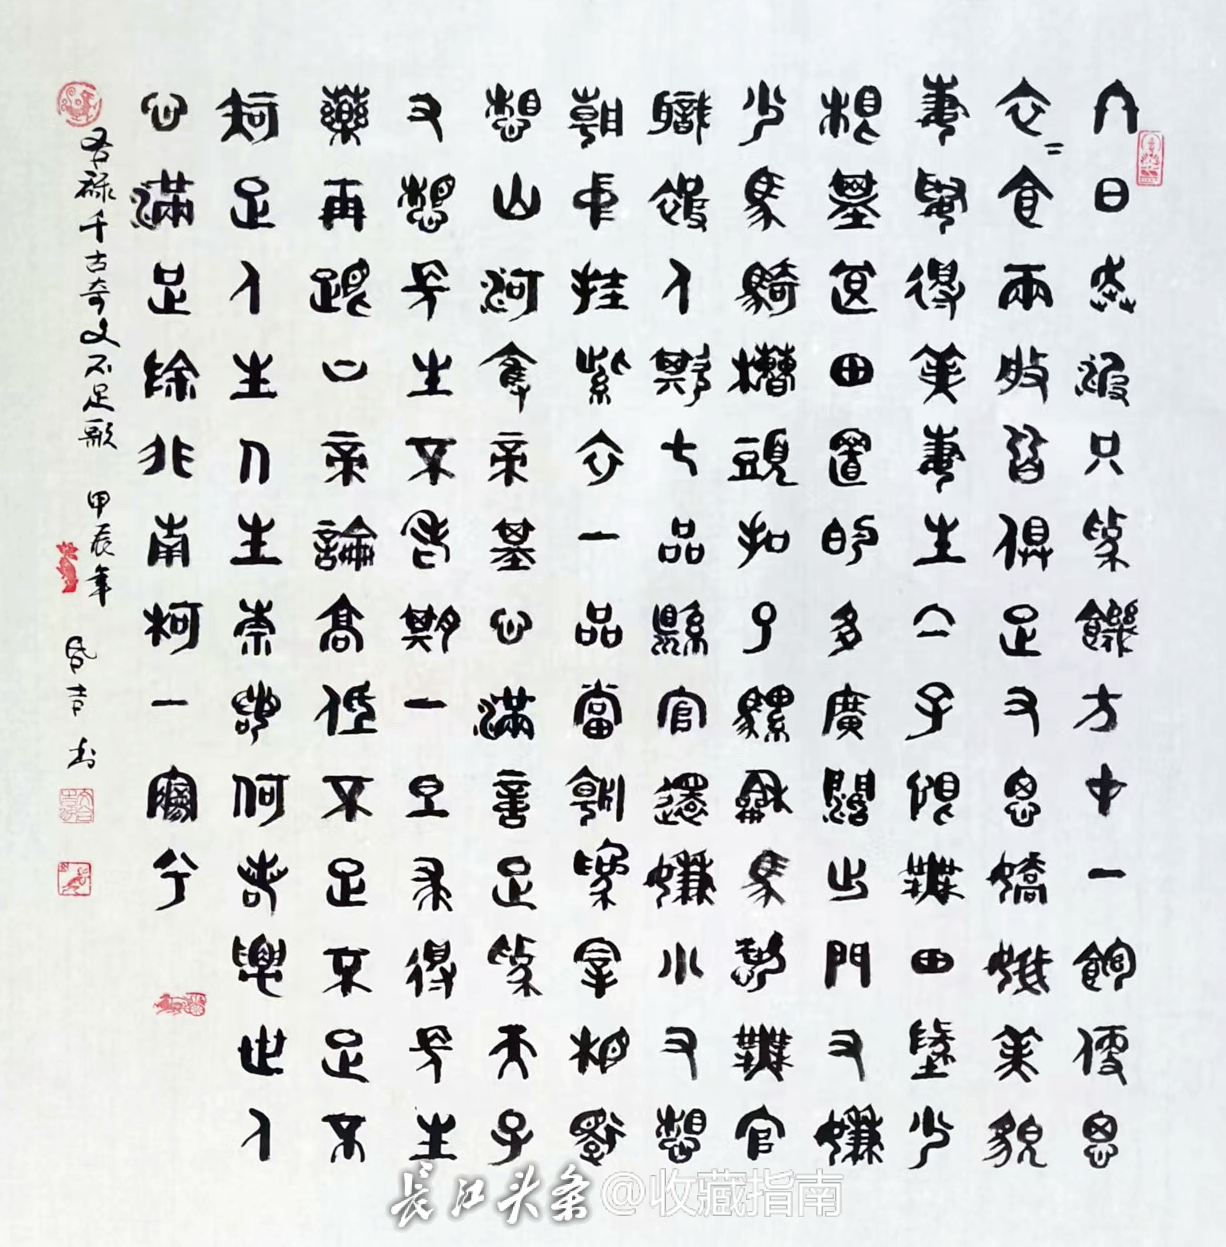 冬日奔波只為饑方中一飽便思
衣=食兩般皆俱足又思嬌娥美貌
妻娶得美妻生下子恨無田地少
根基買田置的多廣闊出門又嫌
少馬騎槽頭扣了騾和馬歎無官
職被人欺七品縣官還嫌小又想
朝中挂紫衣一品當朝為宰相還
想山河奪帝基心滿意足為天子
又想長生不老期一旦求得長生
藥再跟上帝論高低不足不足不
知足人生人生奈何若與世人
心滿足除非南柯一夢兮
右祿千古奇文不足歌 甲辰年 書
长江头条@收藏指南